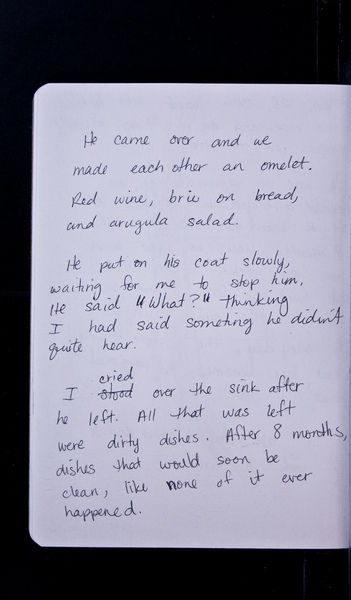 He came over and we
made each other an omelet.
Red wine, brie on bread,
and arugula salad.
He put on his coat slowly,
waiting for me to stop him.
He said "What?" thinking
I had said someting he didin't
quite hear.
cried
I stood over the sink after
he left. All that was left
were dirty dishes. After 8 months,
dishes that would soon be
clean, like none of it ever
happened.